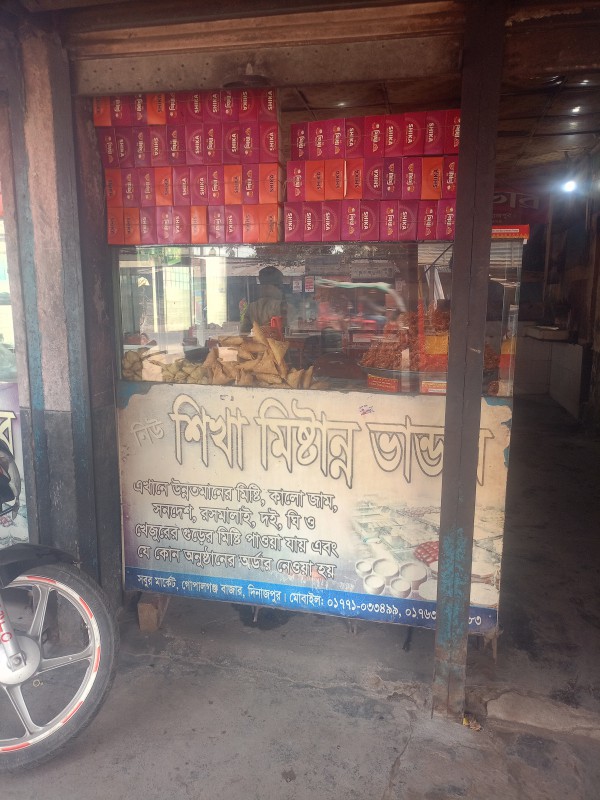 SHIKA
নিউ শিখা মিষ্টান্ন ভান্ডার
এখানে উন্নতমানের মিষ্টি, কালো জাম,
সনদেশ, রসমালাই, দই, ঘি ও
খেজুরের গুড়ের মিষ্টি পাওয়া যায় এবং
যে কোন অনুষ্ঠানের অর্ডার নেওয়া হয়
সবুর মার্কেট, গোপালগঞ্জ বাজার, দিনাজপুর। মোবাইল: ০১৭৭১-০৩৩৪৯৯, ০১৭৬৩